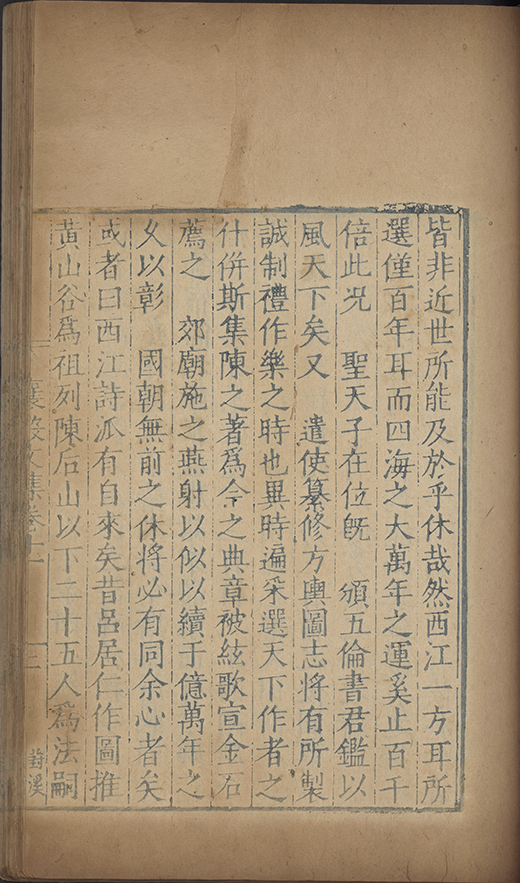 皆非近世所能及於乎休哉然西江一方耳所
選僅百年耳而四海之大萬年之運奚止百千
倍此况 聖天子在位旣 頒五倫書君鑑以
風天下矣又 遣使纂修方輿圖志將有所製
誠制禮作樂之時也異時遍采選天下作者之
什併斯集陳之著爲今之典章被絃歌宣金石
薦之 郊廟施之燕射以似以續于億萬年之
久以彰 國朝無前之休將必有同余心者矣
或者曰西江詩派有自來矣昔呂居仁作圖推
黃山谷爲祖列陳后山以下二十五人爲法嗣
襄毅文集卷十一
三
葑溪